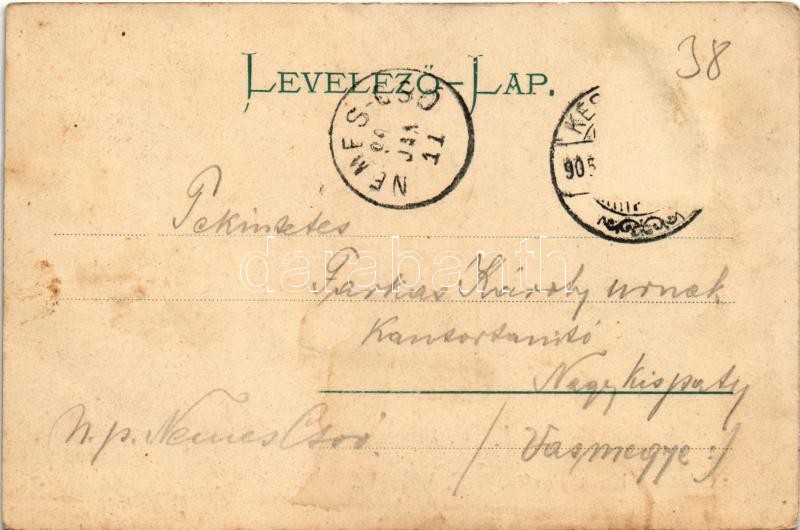 38
LEVELEZŐ-LAP.
NEMES-CSÓ
JAN
11
KES
905
Tekintetes
darabanth
Farkas Károly urnak
Kantortanitó
Nagykispaty
n. p. Nemes Csó.
/ Vasmegye :/